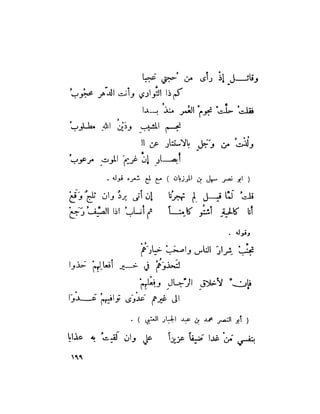 وقائــل إذْ رأى من حجبتي عجبا
كم ذا التّواري وأنت الدّهر محجُوبُ
فقلتُ حلّتْ نجومُ العُمر منذُ بــدا
نجــم المشيبِ ودَيْنُ اللهِ مطــلوبُ
ولُذْتُ من وَجَلٍ بالاستتار عن الا
أبصــارِ إنَّ غريمَ الموتِ مرعوبُ
( ابو نصر سهل بن المرزبان ) مع لمع شعره قوله .
قلتُ لمّا قيــل لِم تهجرُنا إن أتى بردٌ وان ثلجٌ وَقَعْ
أنا كالحيّةِ أشتُو كامِنــاً ثم أنسابُ اذا الصَّيفُ رَجَعْ
وقوله .
تجنّبْ شِرارَ الناس واصحَبْ خيارَهُمْ
لتَحذوَهُمْ في خــير أفعالِهِمْ حَذوا
فإنّ لأخلاقِ الرّجــالِ وفِعْلِهِمْ
الى غيرهم عَدْوَى توافيهمْ عــدْوَا
( أبو النصر محمد بن عبد الجبار العتبي ) .
بنفسي مَنْ غدا ضَيفاً عزيزاً علي وان لَقيتُ به عذابا
١٩٩